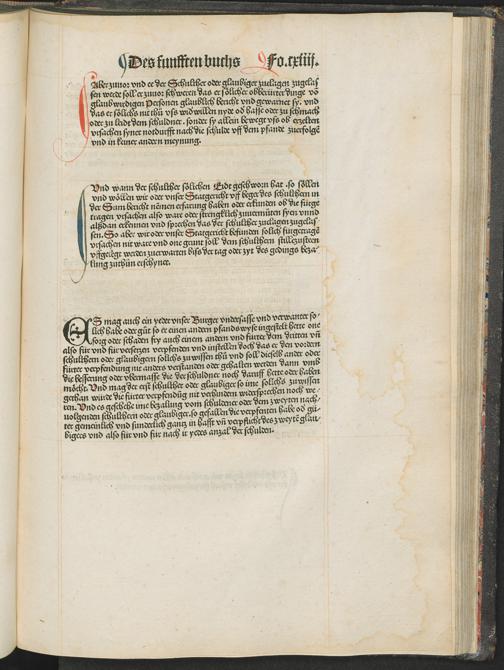 Des funfften buchs Fo.cxiiij.
Aber zuuor vnd ee der Schulther oder glaubiger zuclagen zugelas
sen werde soll er zuuor schweren das er sölicher obberürter dinge võ
glaubwirdigen Personen glaublich bericht vnd gewarnet sy. vnd
das er sölichs nit thü vss widwillen nyde oder hasse oder zu schmach
oder zu leidt dem schuldner. sonder sy allein bewegt vss ob erzelten
vrsachen syner notdurfft nach die schulde vff dem pfande zuerfolgẽ
vnd in keiner andern meynung.
Vnd wann der schulther sölichen Eidt geschworn hat so söllen
vnd wöllen wir oder vnser Statgericht vff beger des schulthern in
der Sum bericht nemen erfarung haben oder erkunden ob die fürge
tragen vrsachen also ware oder strenglich zuuermüten syen vnnd
alßdan erkennen vnd sprechen das der schulther zuclagen zugelas
sen. So aber wir oder vnser Statgericht befunden sölich fürgetragẽ
vrsachen nit ware vnd one grunt soll dem schulthern stillzusteen
vffgelegt werden zuerwarten biss der tag oder zyt des gedings beza
lung zuthün erschynet.
ES mag auch ein yeder vnser Burger vndersasse vnd verwanter sö-
lich habe oder güt so er einen andern pfandswyse ingesetzt hette one
sorg oder schaden fry auch einem andern vnd fürter dem dritten vñ
also für vnd für versetzen verpfenden vnd instellen doch das er den vordern
schulthern oder glaubigern sollichs zuwissen thü vnd soll dieselb ander oder
fürter verpfendung nit anders verstanden oder gehalten werden dann vmb
die besserung oder übermasse die der schuldner noch daruff hette oder haben
möcht. Vnd mag der erst schulther oder glaubiger so ime sollichs zuwissen
gethan würde die fürter verpfendũg nit verhindern widersprechen noch we-
ren. Vnd es geschehe ime bezalung vom schuldener oder dem zweyten nach
uolgenden schulthern oder glaubiger. so gefallen die verpfenten habe od gü-
ter gemeinlich vnd sunderlich gantz in hafft vñ verpflicht des zweytẽ glau-
bigers vnd also für vnd für nach ir yedes anzal der schulden.